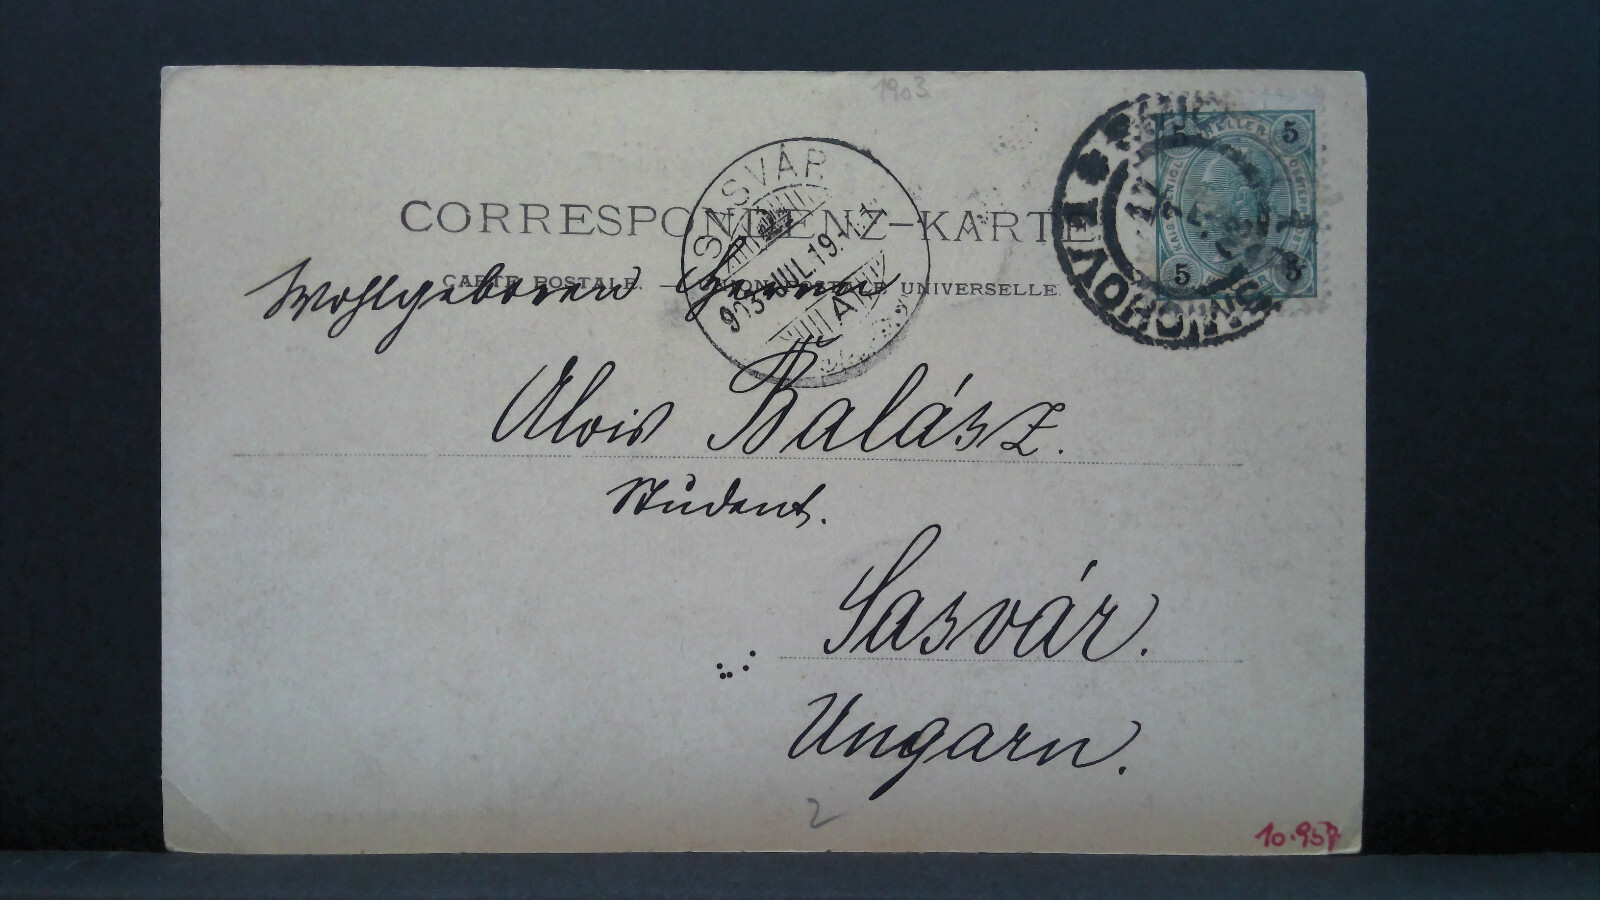 1903
CORRESPONDENZ-KARTE
CARTE POSTALE. — UNION POSTALE UNIVERSELLE.
SASVÁR
903 JUL. 19.
A
SMICHOV 1
17 7
5 HELLER 5
5 5
Wohlgeboren Herrn
Alois Balász.
Student.
Sasvár.
Ungarn.
2
10.957